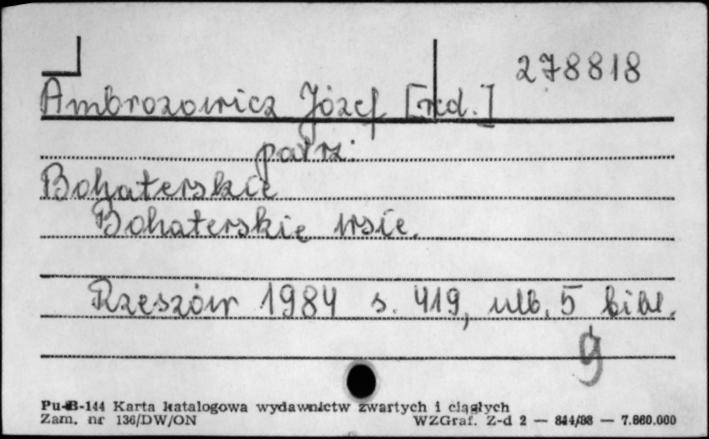 278818
Ambrozowicz Józef [red.]
patrz:
Bohaterskie
Bohaterskie wsie.
Rzeszów 1984 s. 419, nlb. 5 bibl.
g
Pu-B-144 Karta katalogowa wydawnictw zwartych i ciągłych
Zam. nr 136/DW/ON WZGraf. Z-d 2 — 844/88 — 7.860.000